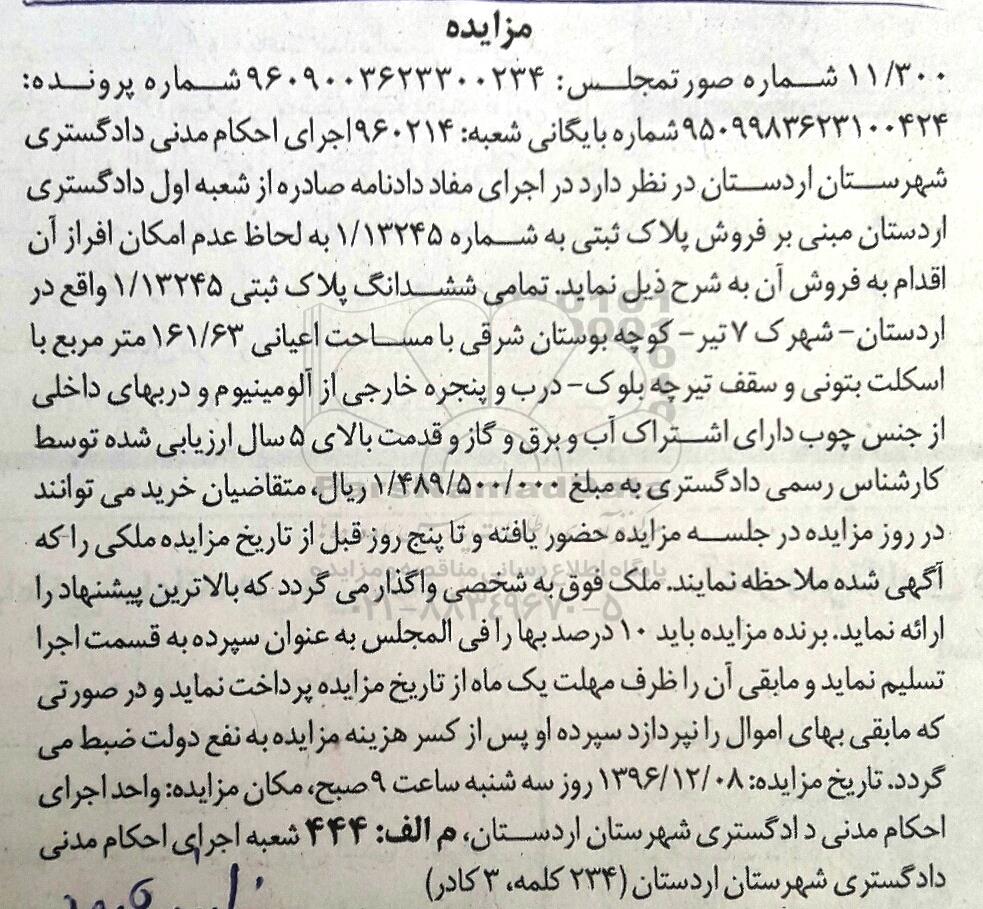 مزایده
۱۱/۳۰۰ شماره صورتمجلس: ۹۶۰۹۰۰۳۶۲۳۳۰۰۲۳۴ شماره پرونده:
۹۵۰۹۹۸۳۶۲۳۱۰۰۴۲۴ شماره بایگانی شعبه: ۹۶۰۲۱۴ اجرای احکام مدنی دادگستری
شهرستان اردستان در نظر دارد در اجرای مفاد دادنامه صادره از شعبه اول دادگستری
اردستان مبنی بر فروش پلاک ثبتی به شماره ۱/۱۳۲۴۵ به لحاظ عدم امکان افراز آن
اقدام به فروش آن به شرح ذیل نماید. تمامی ششدانگ پلاک ثبتی ۱/۱۳۲۴۵ واقع در
اردستان- شهرک ۷ تیر- کوچه بوستان شرقی با مساحت اعیانی ۱۶۱/۶۳ متر مربع با
اسکلت بتونی و سقف تیرچه بلوک- درب و پنجره خارجی از آلومینیوم و دربهای داخلی
از جنس چوب دارای اشتراک آب و برق و گاز و قدمت بالای ۵ سال ارزیابی شده توسط
کارشناس رسمی دادگستری به مبلغ ۱/۴۸۹/۵۰۰/۰۰۰ ریال، متقاضیان خرید می توانند
در روز مزایده در جلسه مزایده حضور یافته و تا پنج روز قبل از تاریخ مزایده ملکی را که
آگهی شده ملاحظه نمایند. ملک فوق به شخصی واگذار می گردد که بالاترین پیشنهاد را
ارائه نماید. برنده مزایده باید ۱۰ درصد بها را فی المجلس به عنوان سپرده به قسمت اجرا
تسلیم نماید و مابقی آن را ظرف مهلت یک ماه از تاریخ مزایده پرداخت نماید و در صورتی
که مابقی بهای اموال را نپردازد سپرده او پس از کسر هزینه مزایده به نفع دولت ضبط می
گردد. تاریخ مزایده: ۱۳۹۶/۱۲/۰۸ روز سه شنبه ساعت ۹ صبح، مکان مزایده: واحد اجرای
احکام مدنی دادگستری شهرستان اردستان، م الف: ۴۴۴ شعبه اجرای احکام مدنی
دادگستری شهرستان اردستان (۲۳۴ کلمه، ۳ کادر)
پایگاه اطلاع رسانی مناقصه و مزایده
۰۲۱-۸۸۳۴۹۶۷۰-۵